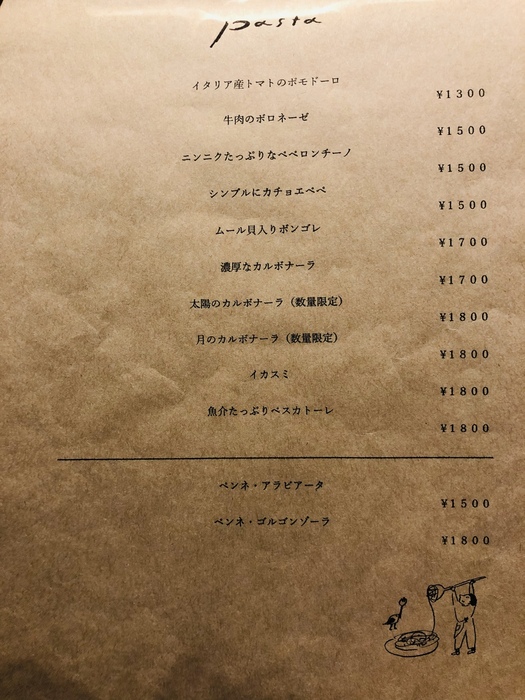 pasta
イタリア産トマトのポモドーロ
¥1300
牛肉のボロネーゼ
¥1500
ニンニクたっぷりなペペロンチーノ
¥1500
シンプルにカチョエペペ
¥1500
ムール貝入りボンゴレ
¥1700
濃厚なカルボナーラ
¥1700
太陽のカルボナーラ（数量限定）
¥1800
月のカルボナーラ（数量限定）
¥1800
イカスミ
¥1800
魚介たっぷりペスカトーレ
¥1800
ペンネ・アラビアータ
¥1500
ペンネ・ゴルゴンゾーラ
¥1800